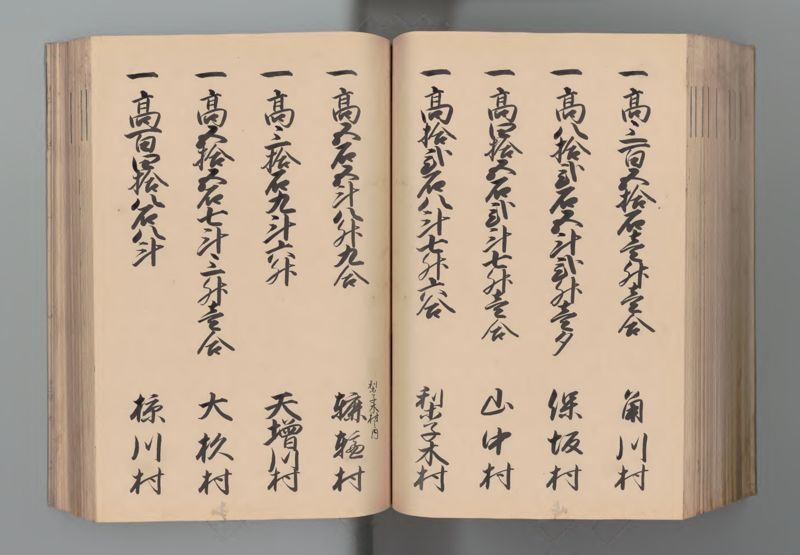 一高三百五拾石壱升壱合 角川村
一高八拾弐石五斗弐升壱夕 保坂村
一高四拾五石弐斗七升壱合 山中村
一高拾弐石八斗七升六合 梨子木村
梨子木村内
一高五石五斗八升九合 轆轤村
一高三拾石九斗六升 天増川村
一高五拾五石七斗三升壱合 大杉村
一高百四拾八石八斗 椋川村